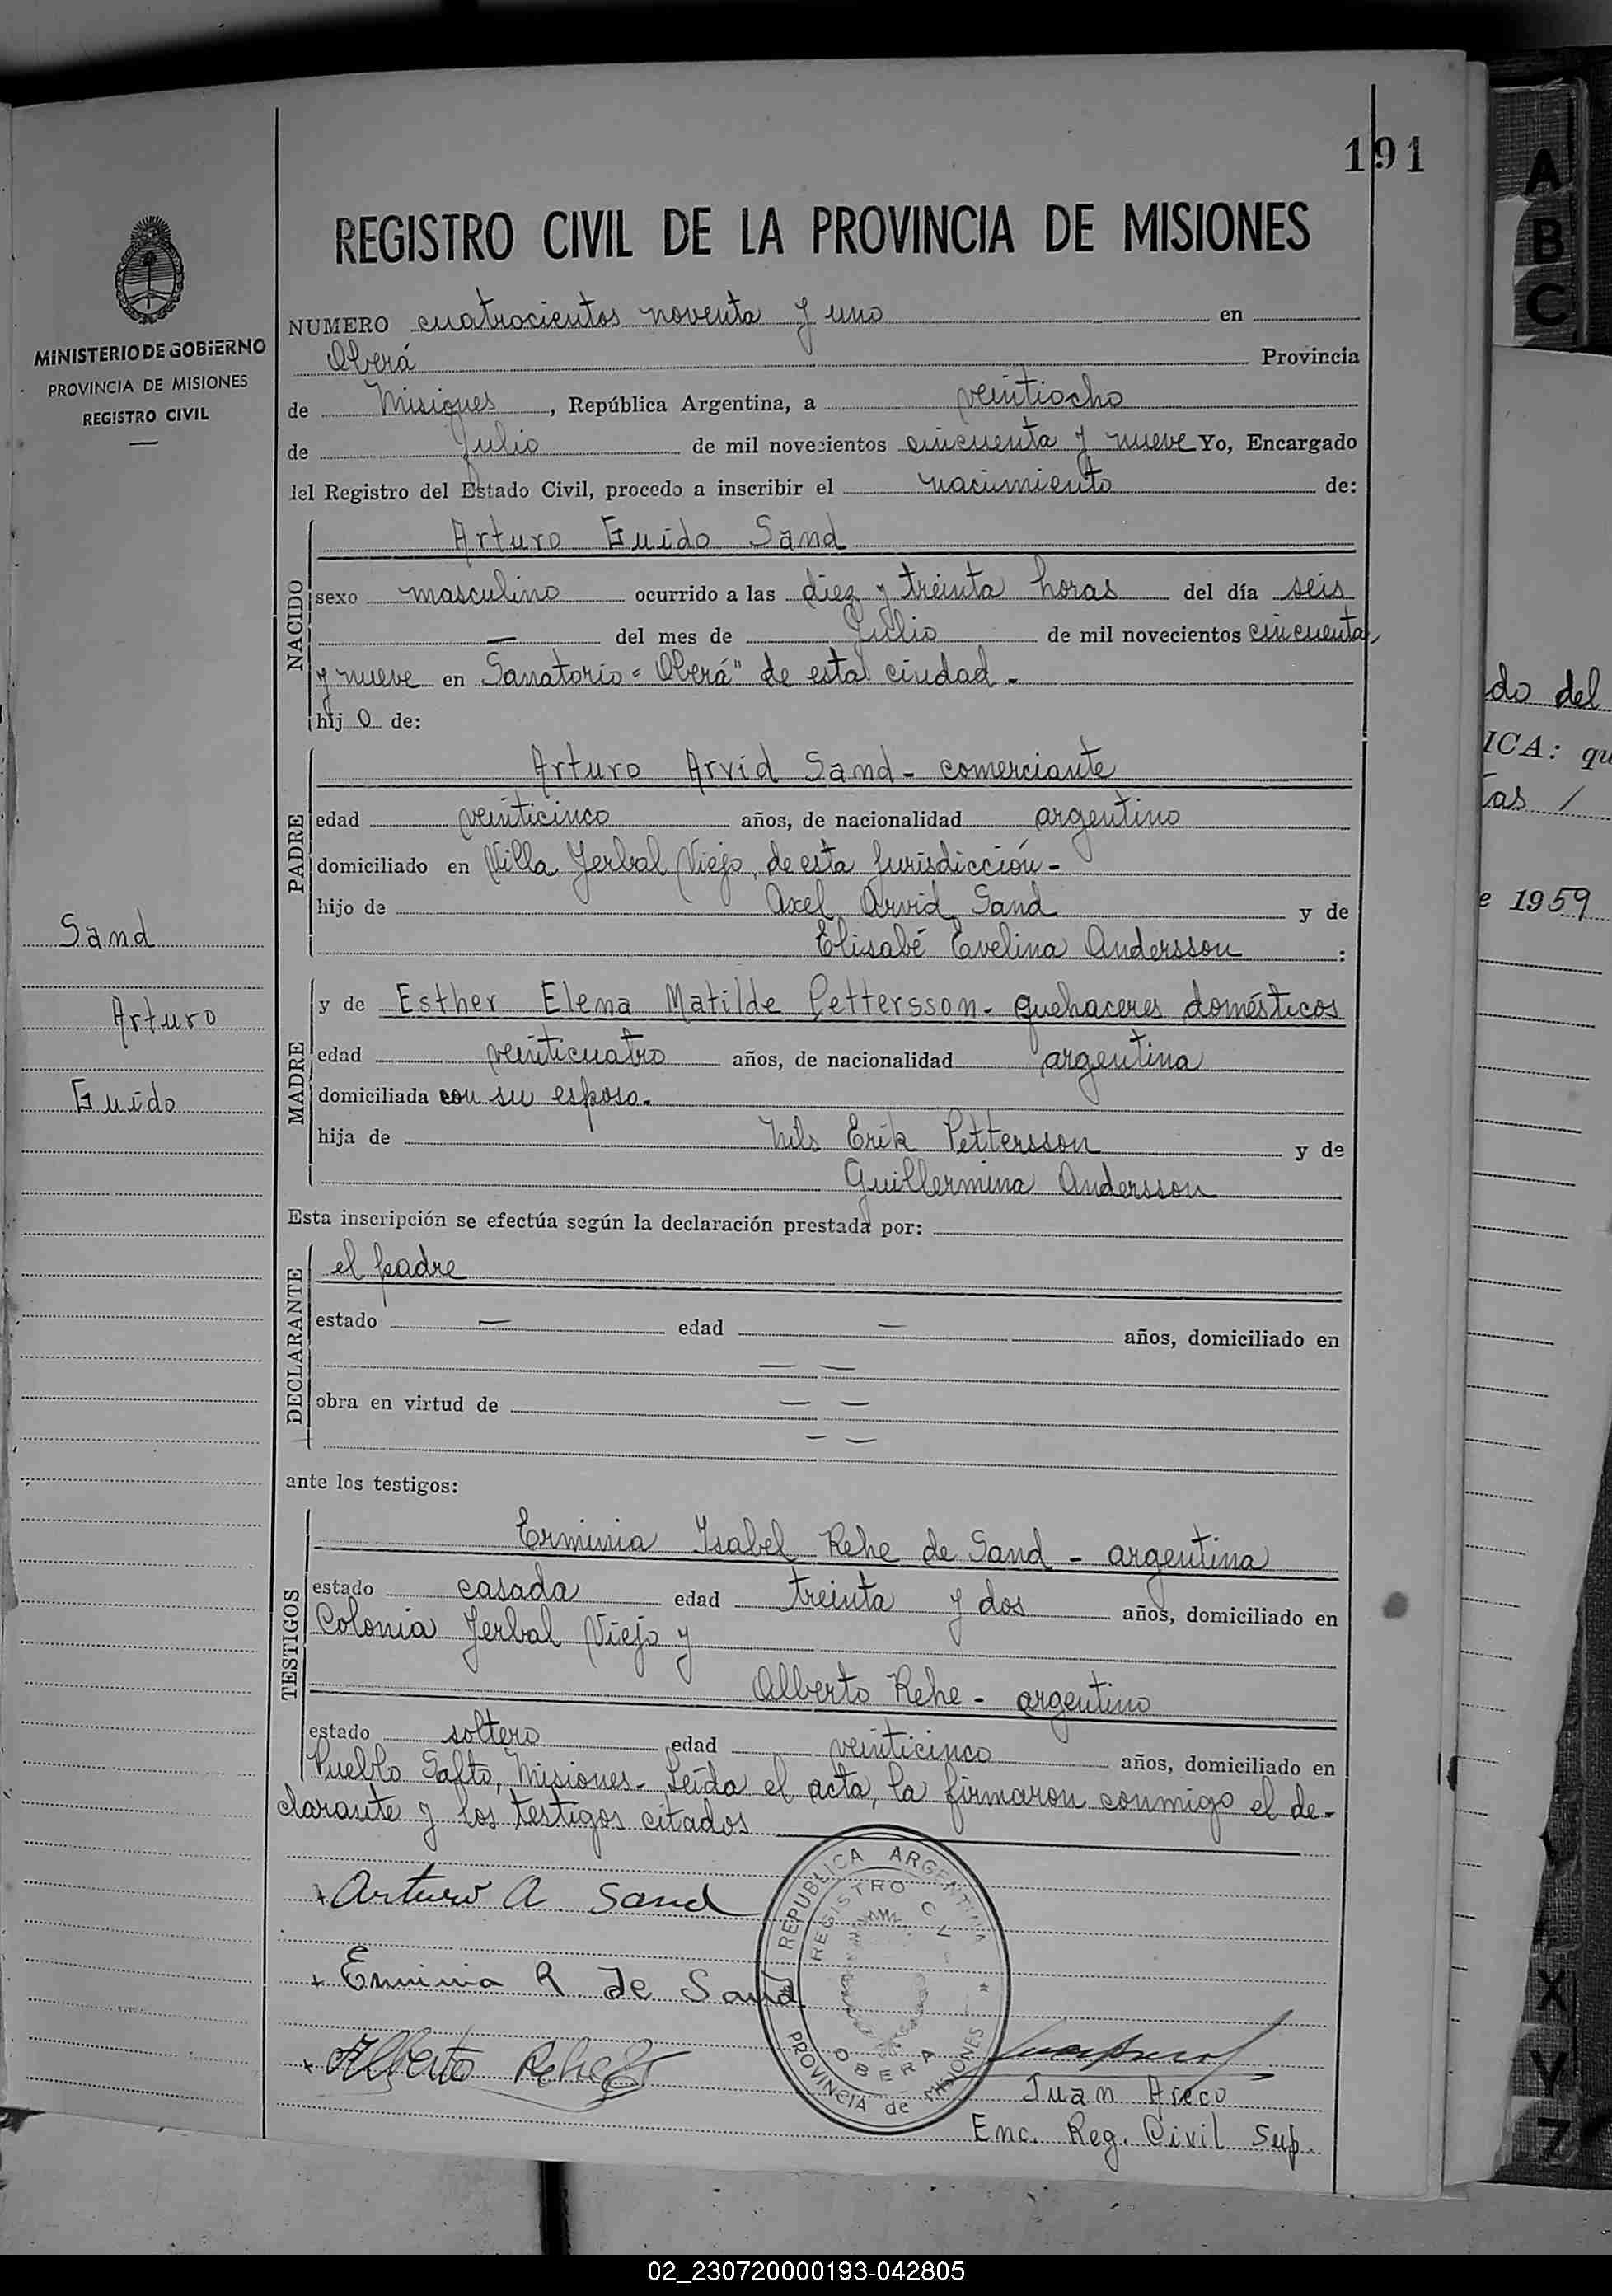 191
REGISTRO CIVIL DE LA PROVINCIA DE MISIONES
MINISTERIO DE GOBIERNO
PROVINCIA DE MISIONES
REGISTRO CIVIL
NUMERO cuatrocientos noventa y uno en
Oberá Provincia
de Misiones, República Argentina, a veintiocho
de Julio de mil novecientos cincuenta y nueve Yo, Encargado
del Registro del Estado Civil, procedo a inscribir el nacimiento de:
NACIDO
Arturo Guido Sand
sexo masculino ocurrido a las diez y treinta horas del día seis
— del mes de Julio de mil novecientos cincuenta
y nueve en Sanatorio "Oberá" de esta ciudad -
hij o de:
PADRE
Arturo Arvid Sand - comerciante
edad veinticinco años, de nacionalidad argentino
domiciliado en Villa Yerbal Viejo, de esta Jurisdicción -
hijo de Axel Arvid Sand y de
Elisabé Evelina Andersson :
Sand
Arturo
Guido
MADRE
y de Esther Elena Matilde Pettersson - quehaceres domésticos
edad veinticuatro años, de nacionalidad argentina
domiciliada con su esposo.
hija de Nils Erik Pettersson y de
Guillermina Andersson
Esta inscripción se efectúa según la declaración prestada por:
DECLARANTE
el padre
estado — edad — años, domiciliado en
— —
obra en virtud de — —
— —
ante los testigos:
TESTIGOS
Erminia Isabel Rehe de Sand - argentina
estado casada edad treinta y dos años, domiciliado en
Colonia Yerbal Viejo y
Alberto Rehe - argentino
estado soltero edad veinticinco años, domiciliado en
Pueblo Salto, Misiones - Leída el acta, la firmaron conmigo el de-
clarante y los testigos citados
Arturo A. Sand
Erminia R. de Sand
Alberto Rehe
REPUBLICA ARGENTINA
REGISTRO CIVIL
OBERA
PROVINCIA de MISIONES
Juan Areco
Enc. Reg. Civil Sup.
do del
ICA: qu
tas /
e 1959
A
B
C
X
Y
Z
02_230720000193-042805